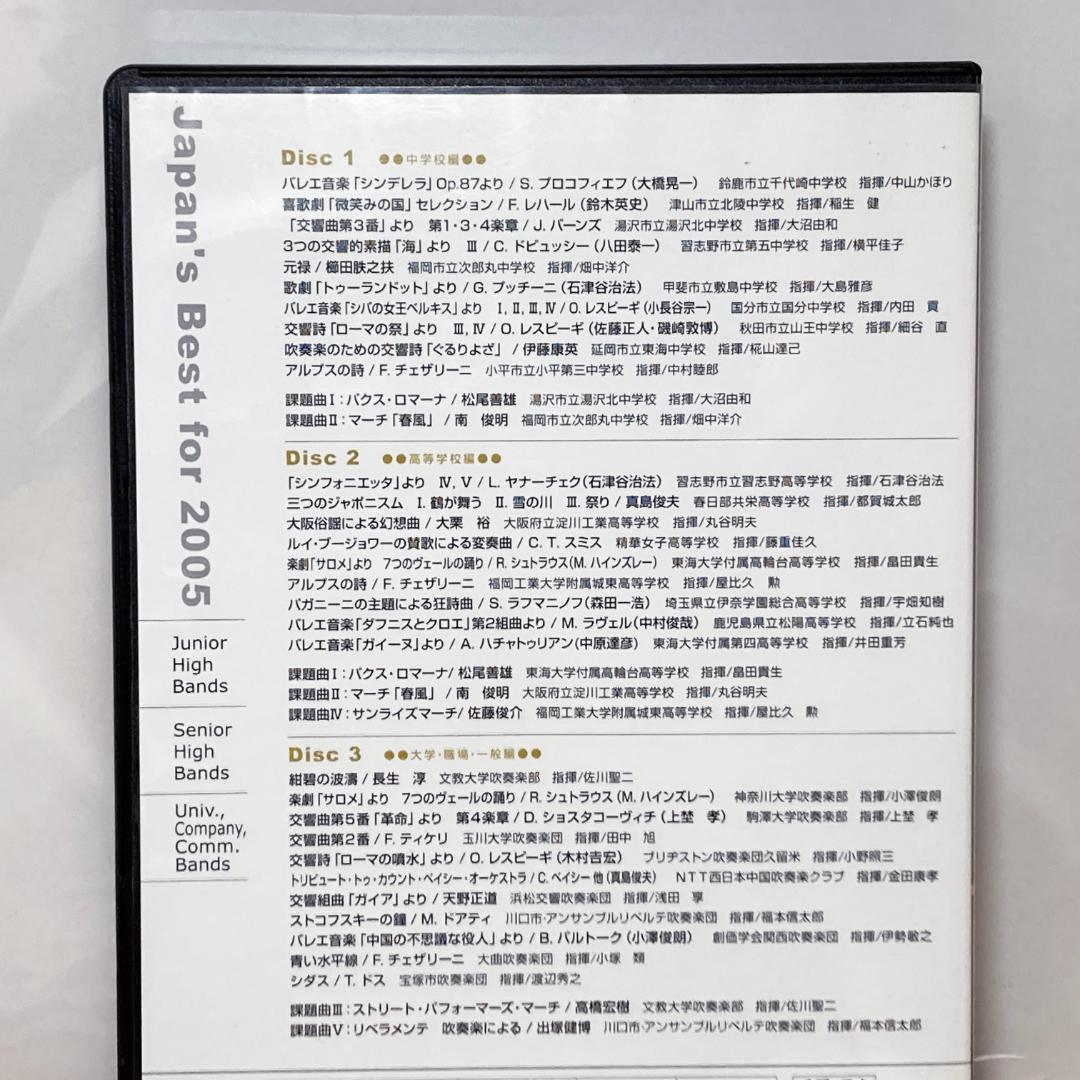 Japan's Best for 2005
Junior
High
Bands
Senior
High
Bands
Univ.,
Company,
Comm.
Bands
Disc 1 ●●中学校編●●
バレエ音楽「シンデレラ」Op.87より / S. プロコフィエフ（大橋晃一） 鈴鹿市立千代崎中学校 指揮/中山かほり
喜歌劇「微笑みの国」セレクション / F. レハール（鈴木英史） 津山市立北陵中学校 指揮/稲生 健
「交響曲第3番」より 第1・3・4楽章 / J. バーンズ 湯沢市立湯沢北中学校 指揮/大沼由和
3つの交響的素描「海」より Ⅲ / C. ドビュッシー（八田泰一） 習志野市立第五中学校 指揮/横平佳子
元禄 / 櫛田胅之扶 福岡市立次郎丸中学校 指揮/畑中洋介
歌劇「トゥーランドット」より / G. プッチーニ（石津谷治法） 甲斐市立敷島中学校 指揮/大島雅彦
バレエ音楽「シバの女王ベルキス」より Ⅰ,Ⅱ,Ⅲ,Ⅳ / O. レスピーギ（小長谷宗一） 国分市立国分中学校 指揮/内田 貢
交響詩「ローマの祭」より Ⅲ,Ⅳ / O. レスピーギ（佐藤正人・磯崎敦博） 秋田市立山王中学校 指揮/細谷 直
吹奏楽のための交響詩「ぐるりよざ」 / 伊藤康英 延岡市立東海中学校 指揮/椛山達己
アルプスの詩 / F. チェザリーニ 小平市立小平第三中学校 指揮/中村睦郎
課題曲Ⅰ：パクス・ロマーナ / 松尾善雄 湯沢市立湯沢北中学校 指揮/大沼由和
課題曲Ⅱ：マーチ「春風」 / 南 俊明 福岡市立次郎丸中学校 指揮/畑中洋介
Disc 2 ●●高等学校編●●
「シンフォニエッタ」より Ⅳ, Ⅴ / L. ヤナーチェク（石津谷治法） 習志野市立習志野高等学校 指揮/石津谷治法
三つのジャポニスム Ⅰ. 鶴が舞う Ⅱ. 雪の川 Ⅲ. 祭り / 真島俊夫 春日部共栄高等学校 指揮/都賀城太郎
大阪俗謡による幻想曲 / 大栗 裕 大阪府立淀川工業高等学校 指揮/丸谷明夫
ルイ・ブージョワーの賛歌による変奏曲 / C. T. スミス 精華女子高等学校 指揮/藤重佳久
楽劇「サロメ」より 7つのヴェールの踊り / R. シュトラウス（M. ハインズレー） 東海大学付属高輪台高等学校 指揮/畠田貴生
アルプスの詩 / F. チェザリーニ 福岡工業大学附属城東高等学校 指揮/屋比久 勲
パガニーニの主題による狂詩曲 / S. ラフマニノフ（森田一浩） 埼玉県立伊奈学園総合高等学校 指揮/宇畑知樹
バレエ音楽「ダフニスとクロエ」第2組曲より / M. ラヴェル（中村俊哉） 鹿児島県立松陽高等学校 指揮/立石純也
バレエ音楽「ガイーヌ」より / A. ハチャトゥリアン（中原達彦） 東海大学付属第四高等学校 指揮/井田重芳
課題曲Ⅰ：パクス・ロマーナ/ 松尾善雄 東海大学付属高輪台高等学校 指揮/畠田貴生
課題曲Ⅱ：マーチ「春風」 / 南 俊明 大阪府立淀川工業高等学校 指揮/丸谷明夫
課題曲Ⅳ：サンライズマーチ/ 佐藤俊介 福岡工業大学附属城東高等学校 指揮/屋比久 勲
Disc 3 ●●大学・職場・一般編●●
紺碧の波濤 / 長生 淳 文教大学吹奏楽部 指揮/佐川聖二
楽劇「サロメ」より 7つのヴェールの踊り / R. シュトラウス（M. ハインズレー） 神奈川大学吹奏楽部 指揮/小澤俊朗
交響曲第5番「革命」より 第4楽章 / D. ショスタコーヴィチ（上埜 孝） 駒澤大学吹奏楽部 指揮/上埜 孝
交響曲第2番 / F. ティケリ 玉川大学吹奏楽団 指揮/田中 旭
交響詩「ローマの噴水」より / O. レスピーギ（木村吉宏） ブリヂストン吹奏楽団久留米 指揮/小野照三
トリビュート・トゥ・カウント・ベイシー・オーケストラ / C. ベイシー 他（真島俊夫） NTT西日本中国吹奏楽クラブ 指揮/金田康孝
交響組曲「ガイア」より / 天野正道 浜松交響吹奏楽団 指揮/浅田 享
ストコフスキーの鐘 / M. ドアティ 川口市・アンサンブルリベルテ吹奏楽団 指揮/福本信太郎
バレエ音楽「中国の不思議な役人」より / B. バルトーク（小澤俊朗） 創価学会関西吹奏楽団 指揮/伊勢敏之
青い水平線 / F. チェザリーニ 大曲吹奏楽団 指揮/小塚 類
シダス / T. ドス 宝塚市吹奏楽団 指揮/渡辺秀之
課題曲Ⅲ：ストリート・パフォーマーズ・マーチ / 高橋宏樹 文教大学吹奏楽部 指揮/佐川聖二
課題曲Ⅴ：リベラメンテ 吹奏楽による / 出塚健博 川口市・アンサンブルリベルテ吹奏楽団 指揮/福本信太郎